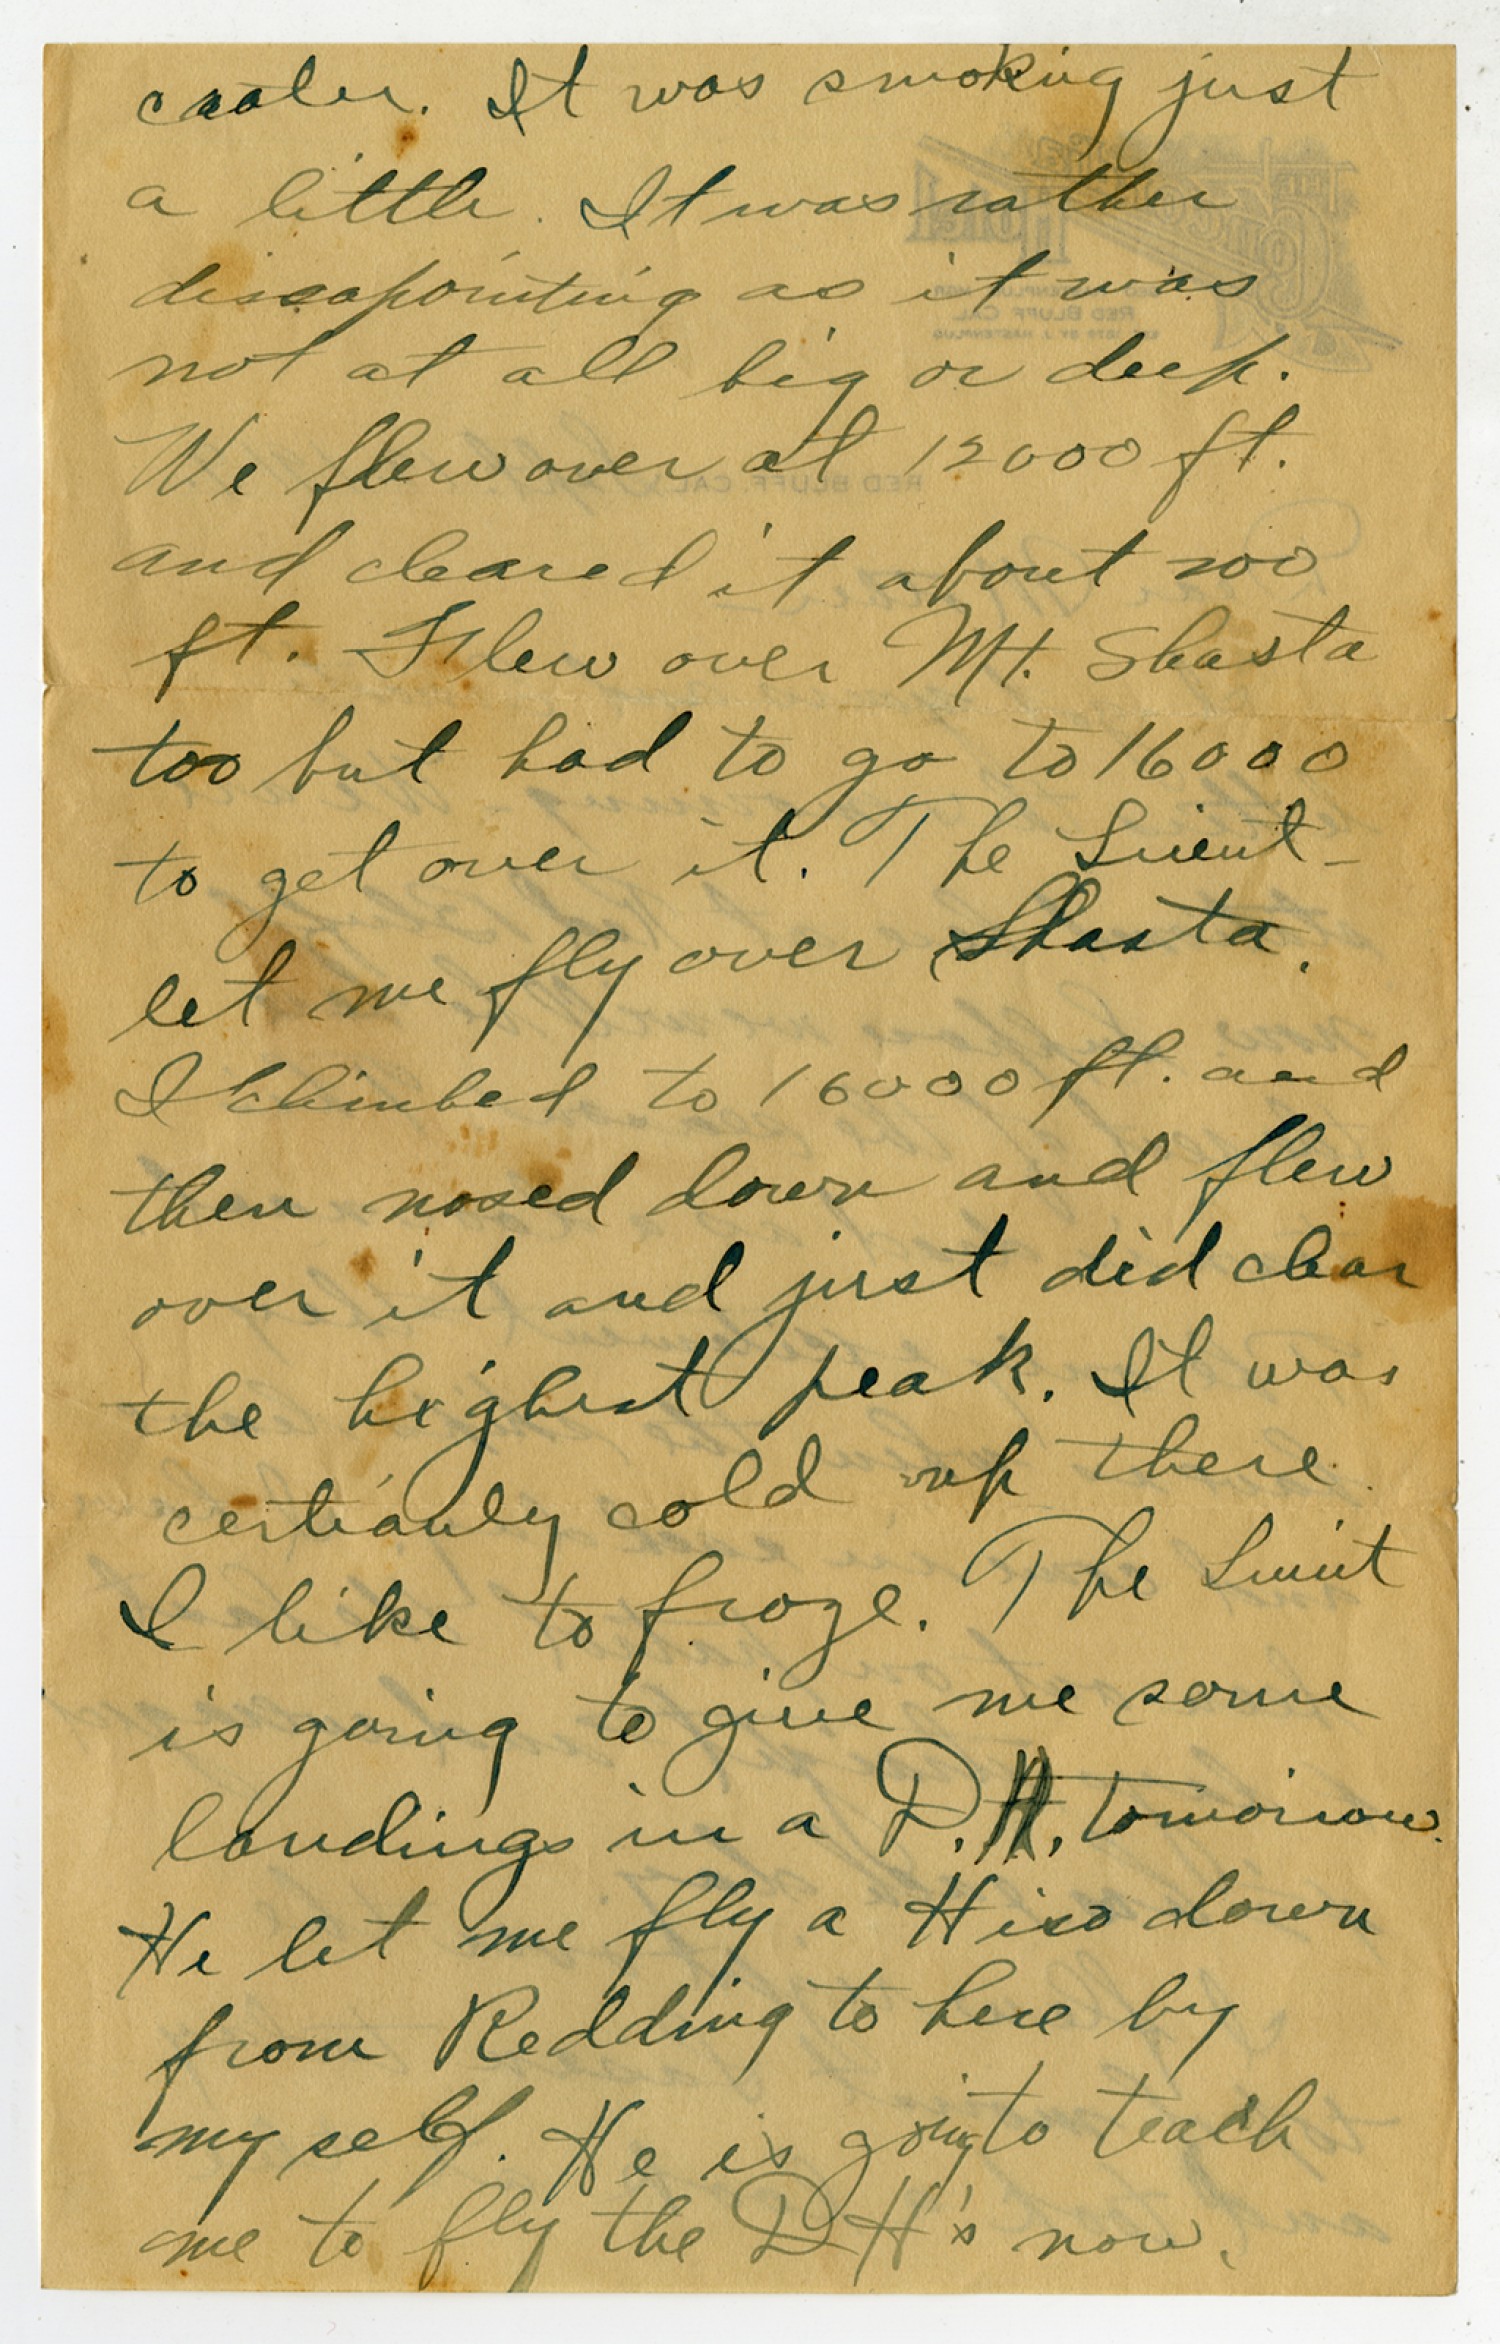 crater. It was smoking just
a little. It was rather
dissapointing as it was
not at all big or deep.
We flew over at 12000 ft.
and cleared it about 200
ft. Flew over Mt. Shasta
too but had to go to 16000
to get over it. The Lieut-
let me fly over Shasta.
I climbed to 16000 ft. and
then nosed down and flew
over it and just did clear
the highest peak. It was
certianly cold up there.
I like to froze. The Lieut
is going to give me some
landings in a D.H. tomorrow.
He let me fly a Hiso down
from Redding to here by
my self. He is going to teach
me to fly the DH's now.
THE
Tremont
Hotel
RED BLUFF CAL
RED BLUFF, CAL